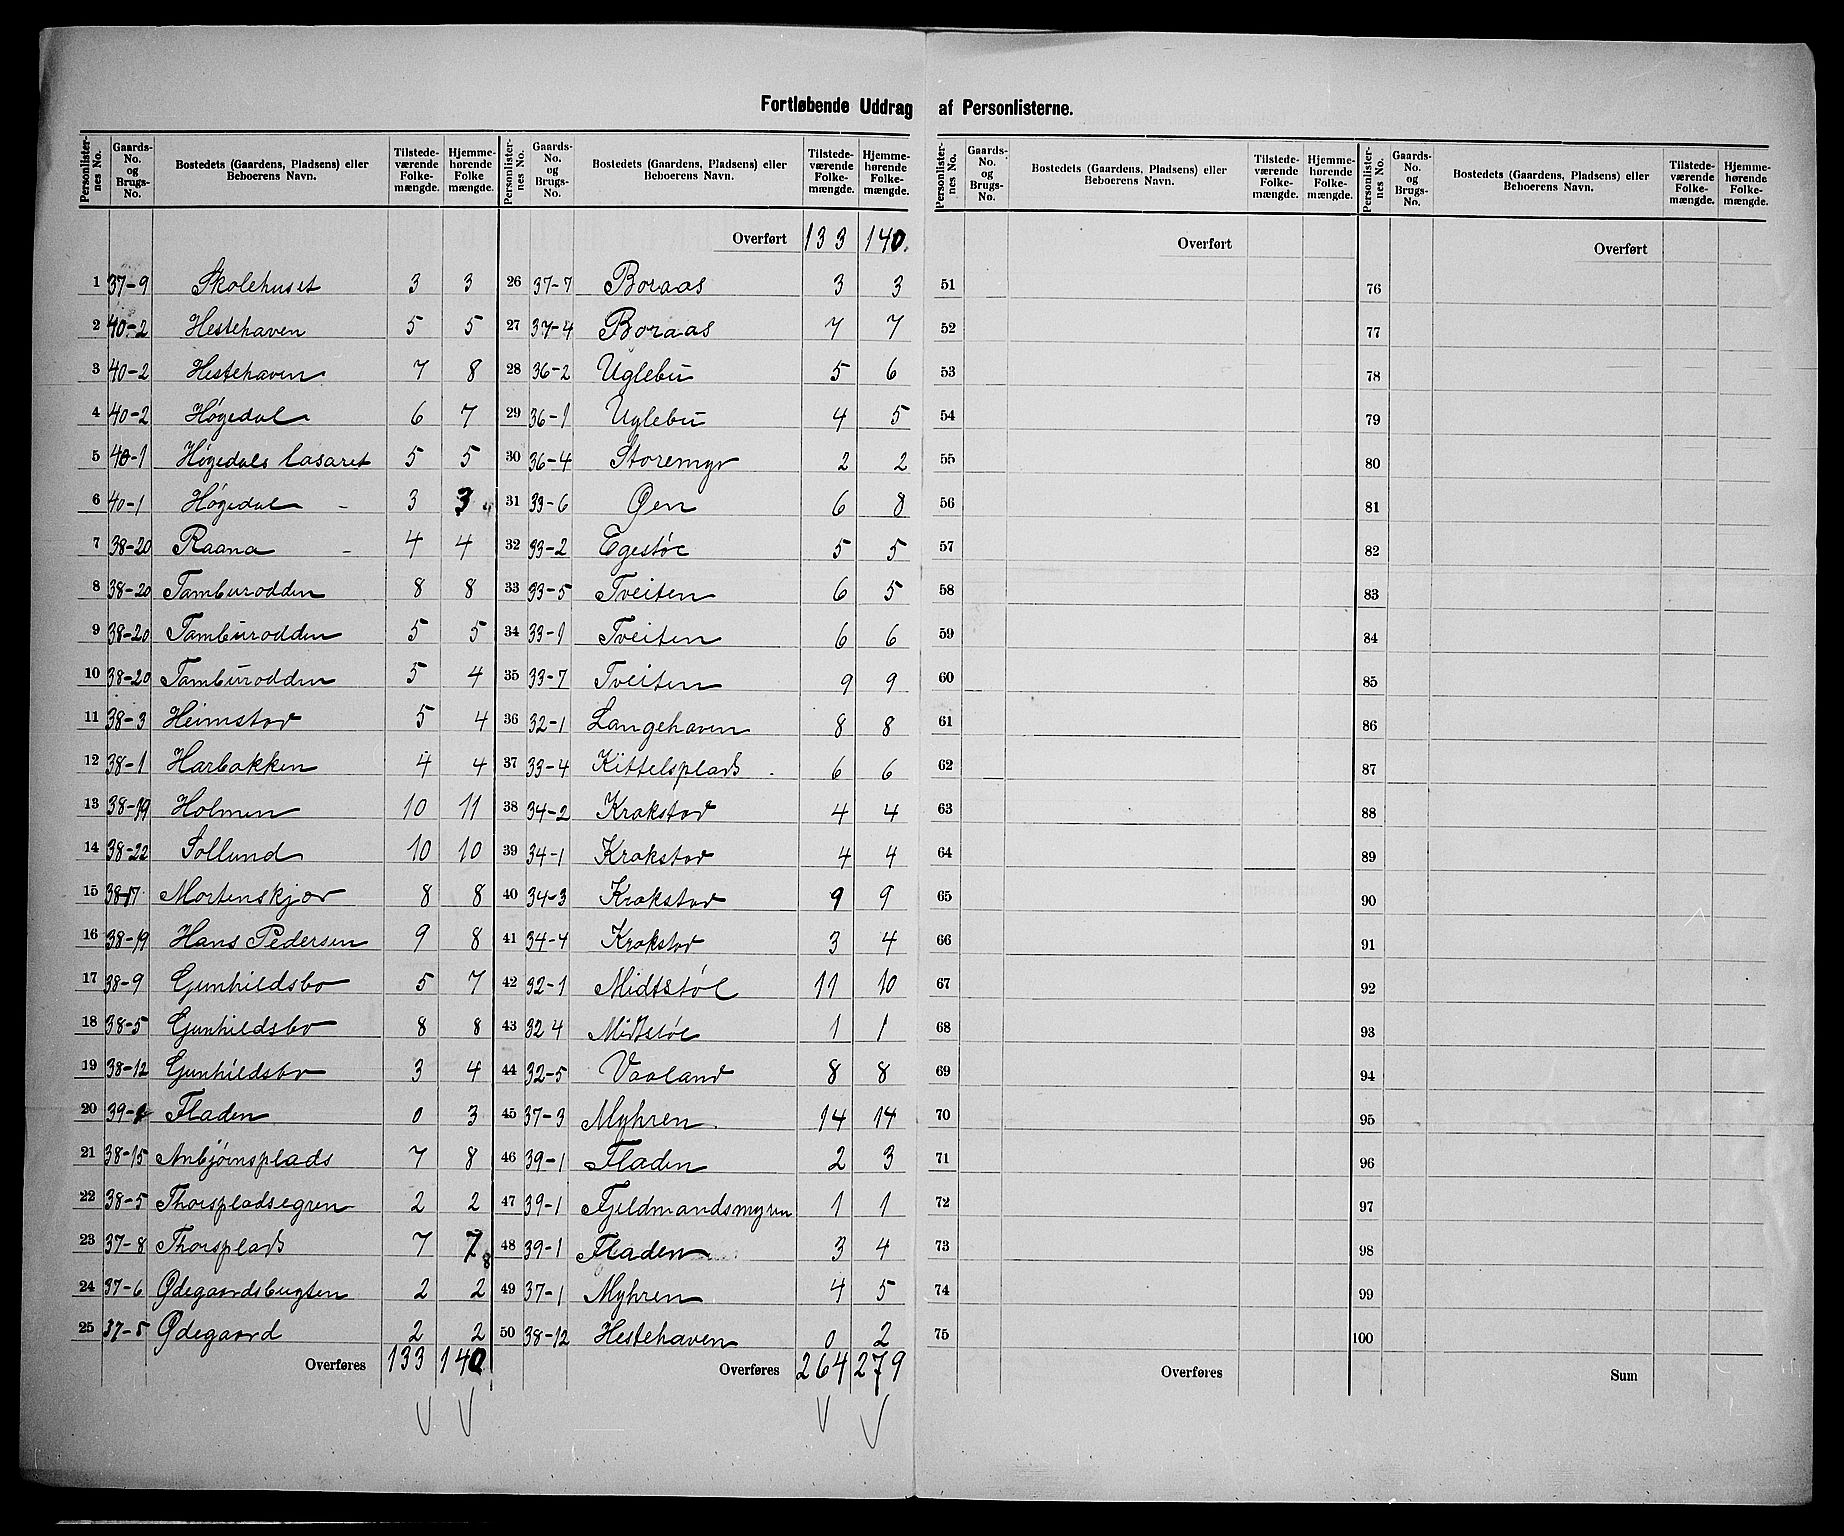 Fortløbende Uddrag af Personlisterne.
Personlister-nes No. | Gaards-No. og Brugs-No. | Bostedets (Gaardens, Pladsens) eller Beboerens Navn. | Tilstede-værende Folke-mængde. | Hjemme-hørende Folke mængde.
1 37-9 Skolehuset 3 3
2 40-2 Hestehaven 5 5
3 40-2 Hestehaven 7 8
4 40-2 Høgedal 6 7
5 40-1 Høgedals lasaret 5 5
6 40-1 Høgedal 3 3
7 38-20 Raana 4 4
8 38-20 Tamburodden 8 8
9 38-20 Tamburodden 5 5
10 38-20 Tamburodden 5 4
11 38-3 Heimstad 5 4
12 38-1 Harbakken 4 4
13 38-19 Holmen 10 11
14 38-22 Sollund 10 10
15 38-17 Mortenskjær 8 8
16 38-19 Hans Pedersen 9 8
17 38-9 Gunhildsbo 5 7
18 38-5 Gunhildsbo 8 8
19 38-12 Gunhildsbo 3 4
20 39-1 Fladen 0 3
21 38-15 Anbjørnsplads 7 8
22 38-5 Thorspladsegren 2 2
23 37-8 Thorsplads 7 7 8
24 37-6 Ødegaardsbugten 2 2
25 37-5 Ødegaard 2 2
Overføres 133 140
Personlister-nes No. | Gaards-No. og Brugs-No. | Bostedets (Gaardens, Pladsens) eller Beboerens Navn. | Tilstede-værende Folke-mængde. | Hjemme-hørende Folke-mængde.
Overført 133 140.
26 37-7 Boraas 3 3
27 37-4 Boraas 7 7
28 36-2 Uglebu 5 6
29 36-1 Uglebu 4 5
30 36-4 Storemyr 2 2
31 33-6 Øen 6 8
32 33-2 Egestøl 5 5
33 33-5 Tveiten 6 5
34 33-1 Tveiten 6 6
35 33-7 Tveiten 9 9
36 32-1 Langehaven 8 8
37 33-4 Kittelsplads 6 6
38 34-2 Krakstad 4 4
39 34-1 Krakstad 4 4
40 34-3 Krakstad 9 9
41 34-4 Krakstad 3 4
42 32-1 Midtstøl 11 10
43 32 4 Midtstøl 1 1
44 32-5 Vaaland 8 8
45 37-3 Myhren 14 14
46 39-1 Fladen 2 3
47 39-1 Fjeldmandsmyren 1 1
48 39-1 Fladen 3 4
49 37-1 Myhren 4 5
50 38-12 Hestehaven 0 2
Overføres 264 279
Personlister-nes No. | Gaards-No. og Brugs-No. | Bostedets (Gaardens, Pladsens) eller Beboerens Navn. | Tilstede-værende Folke-mængde. | Hjemme-hørende Folke-mængde.
Overført
51
52
53
54
55
56
57
58
59
60
61
62
63
64
65
66
67
68
69
70
71
72
73
74
75
Overføres
Personlister-nes No. | Gaards-No. og Brugs-No. | Bostedets (Gaardens, Pladsens) eller Beboerens Navn. | Tilstede-værende Folke-mængde. | Hjemme-hørende Folke-mængde.
Overført
76
77
78
79
80
81
82
83
84
85
86
87
88
89
90
91
92
93
94
95
96
97
98
99
100
Sum